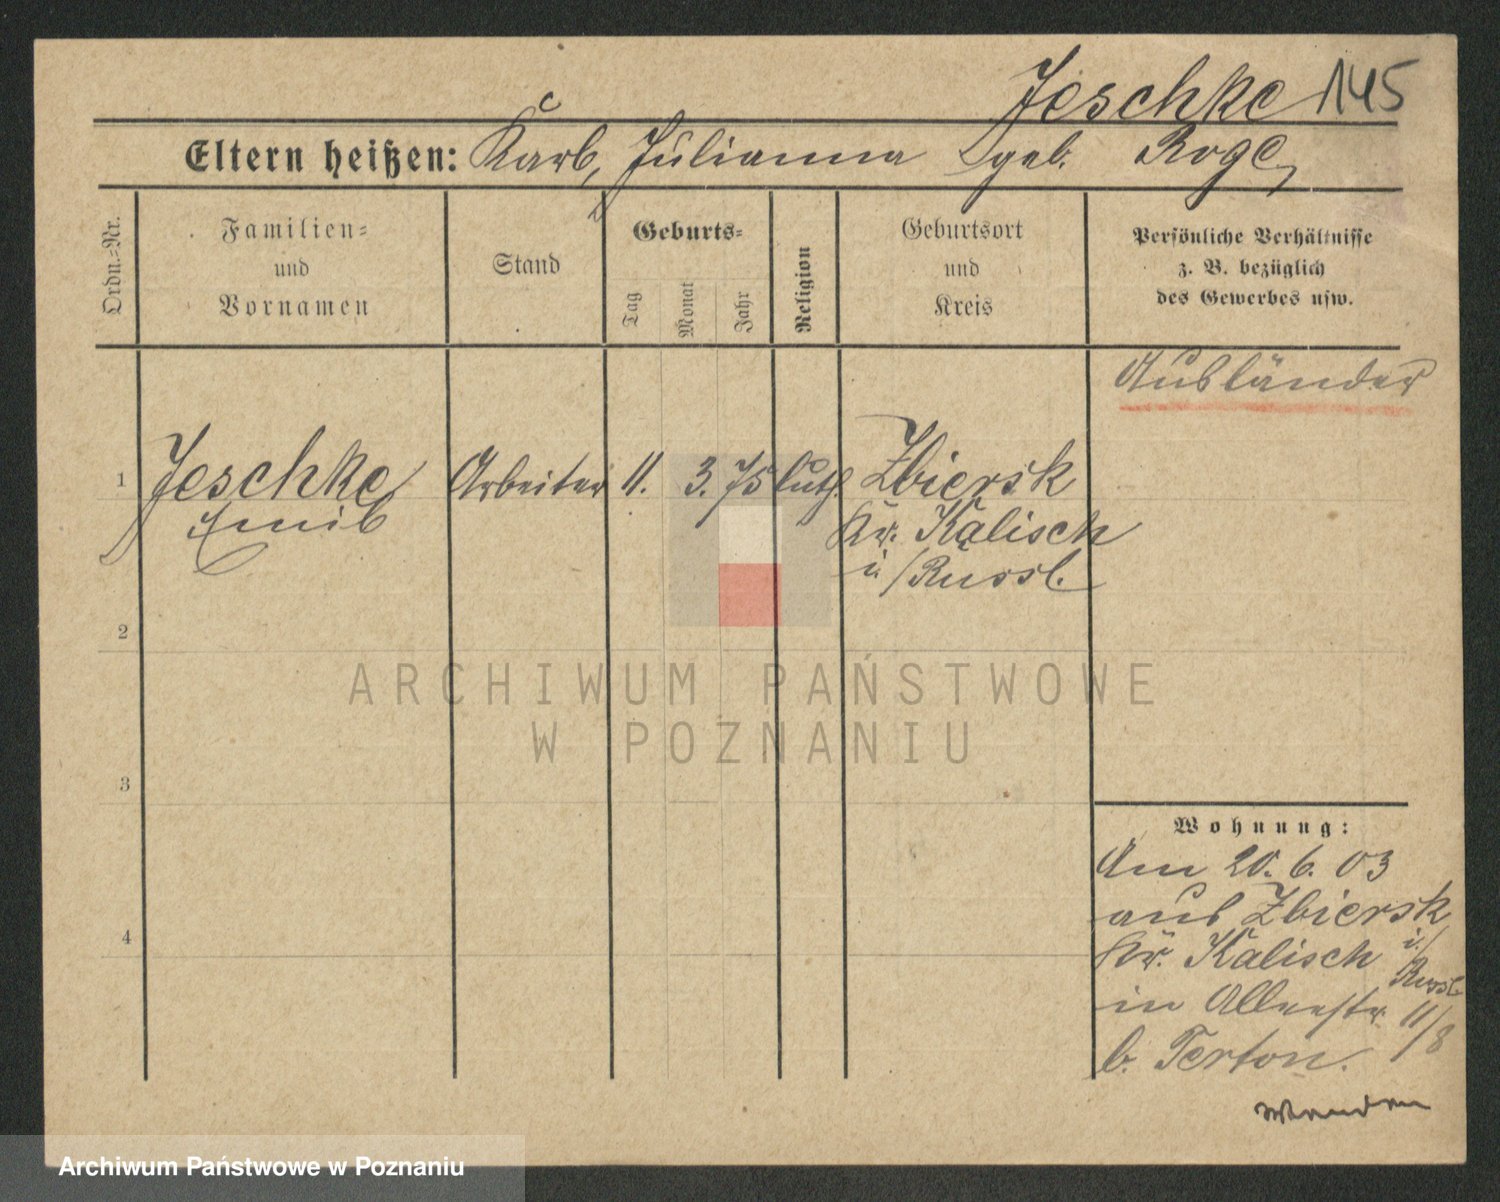 Jeschke 145
Eltern heißen: Karl, Julianna geb. Roge
Ordn.=Nr.
Familien=
und
Vornamen
Stand
Geburts=
Tag
Monat
Jahr
Religion
Geburtsort
und
Kreis
Persönliche Verhältnisse
z. B. bezüglich
des Gewerbes usw.
Ausländer
1 Jeschke Arbeiter 11. 3. 75 luth. Zbiersk
Emil Kr. Kalisch
i/Russl.
2
3
4
Wohnung:
Am 20. 6. 03
aus Zbiersk
Kr. Kalisch i./
Russl.
in Alleestr. 11/8
b. Terton.
Wenden
ARCHIWUM PAŃSTWOWE
W POZNANIU
Archiwum Państwowe w Poznaniu